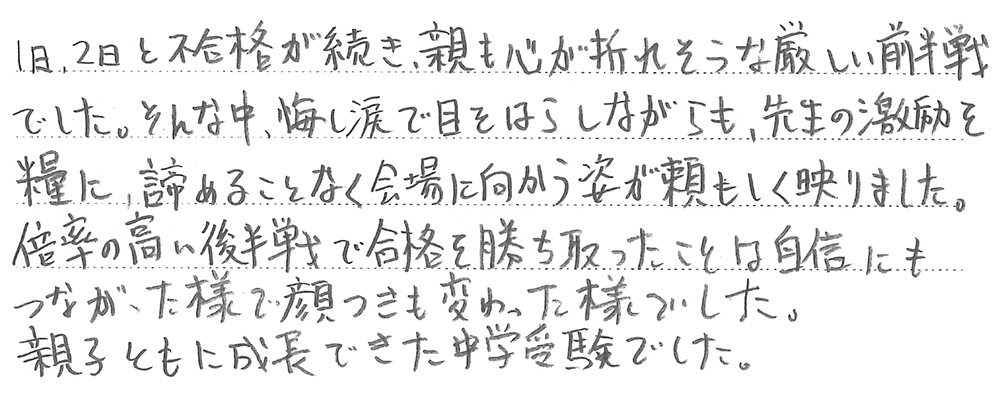 1日、2日と不合格が続き、親も心が折れそうな厳しい前半戦
でした。そんな中、悔し涙で目をはらしながらも、先生の激励を
糧に、諦めることなく会場に向かう姿が頼もしく映りました。
倍率の高い後半戦で合格を勝ち取ったことは自信にも
つながった様で顔つきも変わった様でした。
親子ともに成長できた中学受験でした。